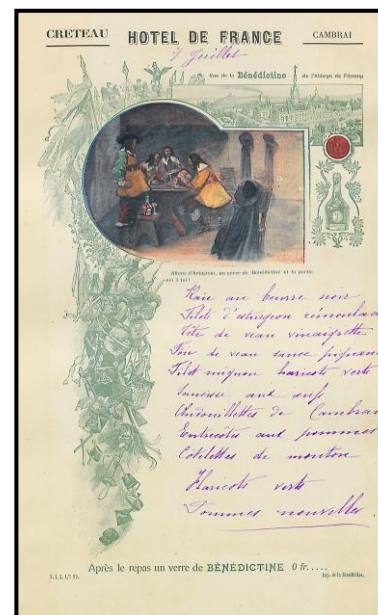 CRETEAU HOTEL DE FRANCE CAMBRAI
7 Juillet
Vue de la Bénédictine de l'Abbaye de Fécamp
Allons d'Artagnan, un verre de Bénédictine et la partie
est à toi!
Raie au beurre noir
Filets d'esturgeon rémoulade
Tête de veau vinaigrette
Foie de veau sauce piquante
Filet mignon haricots verts
Saucisse aux œufs
Andouillettes de Cambrai
Entrecôtes aux pommes
Côtelettes de mouton
Haricots verts
Pommes nouvelles
Après le repas un verre de BÉNÉDICTINE 0 fr.....
Imp. de la Bénédictine.